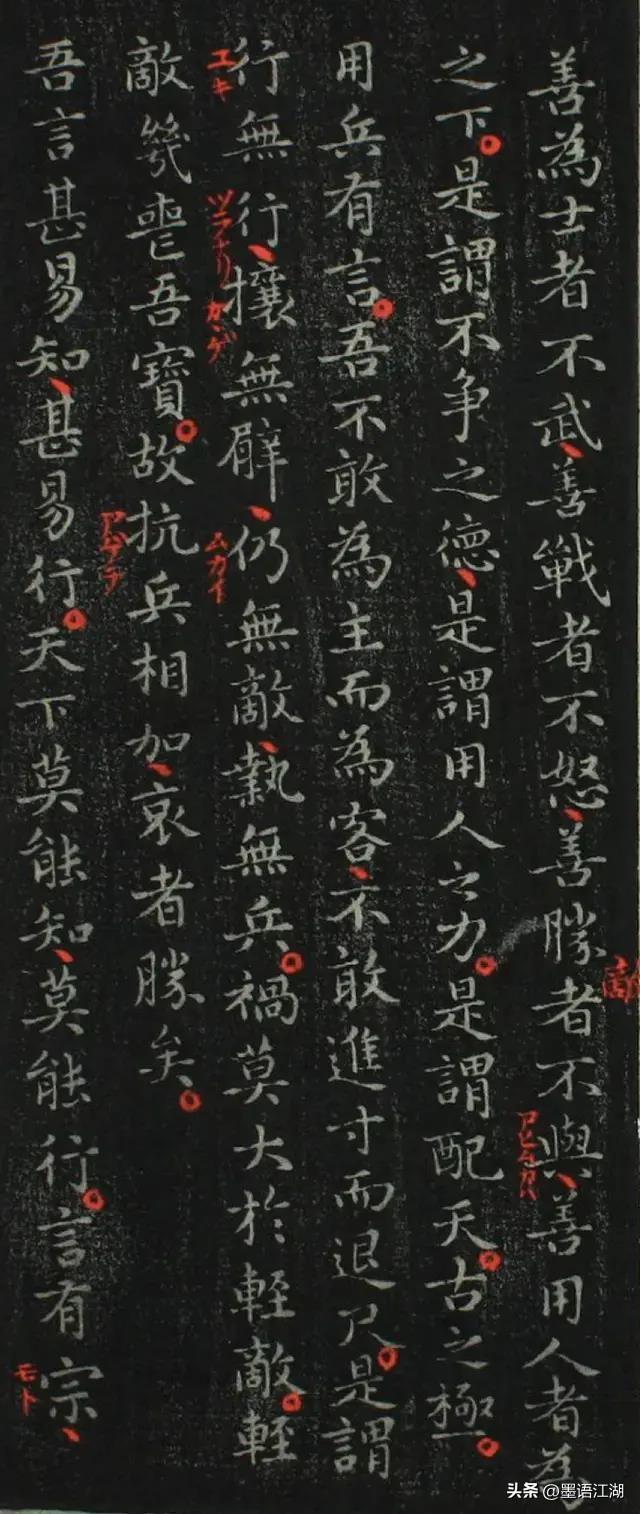 善為士者不武、善戰者不怒、善勝者不與、善用人者為
敵
之下。是謂不争之德、是謂用人之力。是謂配天。古之極。
用兵有言。吾不敢為主而為客、不敢進寸而退尺。是謂
行無行、攘無臂、仍無敵、執無兵。禍莫大於軽敵。軽
ユキ
ツラナリ
カヽゲ
ムカイ
敵幾喪吾寶。故抗兵相加、哀者勝矣。
吾言甚易知、甚易行。天下莫能知、莫能行。言有宗、
モト
头条 @墨语江湖